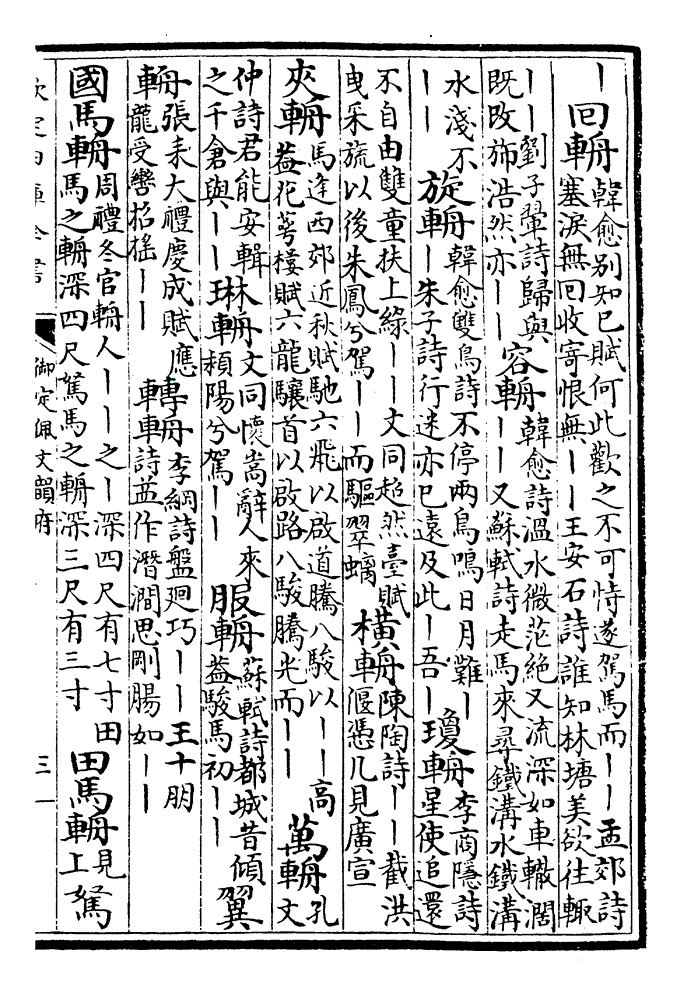 ｜回輈韓愈别知己賦何此歡之不可恃遂駕馬而｜｜孟郊詩塞淚無回收寄恨無｜｜王安石詩誰知林塘美欲往輙
｜｜劉子翬詩歸與既攺旆浩然亦｜｜容輈韓愈詩溫水微茫絶又流深如車轍濶｜｜又蘇軾詩走馬來尋鐵溝水鐵溝
水淺不｜｜旋輈韓愈雙鳥詩不停兩鳥鳴日月難｜｜朱子詩行迷亦已遠及此｜吾｜瓊輈李商隱詩星使追還
不自由雙童扶上緑｜｜文同超然臺賦曵采旒以後朱鳳兮駕｜｜而驅翠螭橫輈陳陶詩｜｜截洪偃慿几見廣宣
夾輈馬逢西郊近秋賦馳六飛以啟道騰八駿以｜｜高葢花萼樓賦六龍驤首以啟路八駿騰光而｜｜萬輈孔文
仲詩君能安輯之千倉與｜｜琳輈文同懷嵩辭人來潁陽兮駕｜｜服輈蘇軾詩都城昔傾葢駿馬初｜｜翼
輈張耒大禮慶成賦應龍受轡招搖｜｜轉輈李綱詩盤廻巧｜｜王十朋車詩並作潛澗思剛腸如｜｜
國馬輈周禮冬官輈人｜｜之｜深四尺有七寸田馬之輈深四尺駑馬之輈深三尺有三寸田馬輈見上駑
欽定四庫全書
御定佩文韻府
三